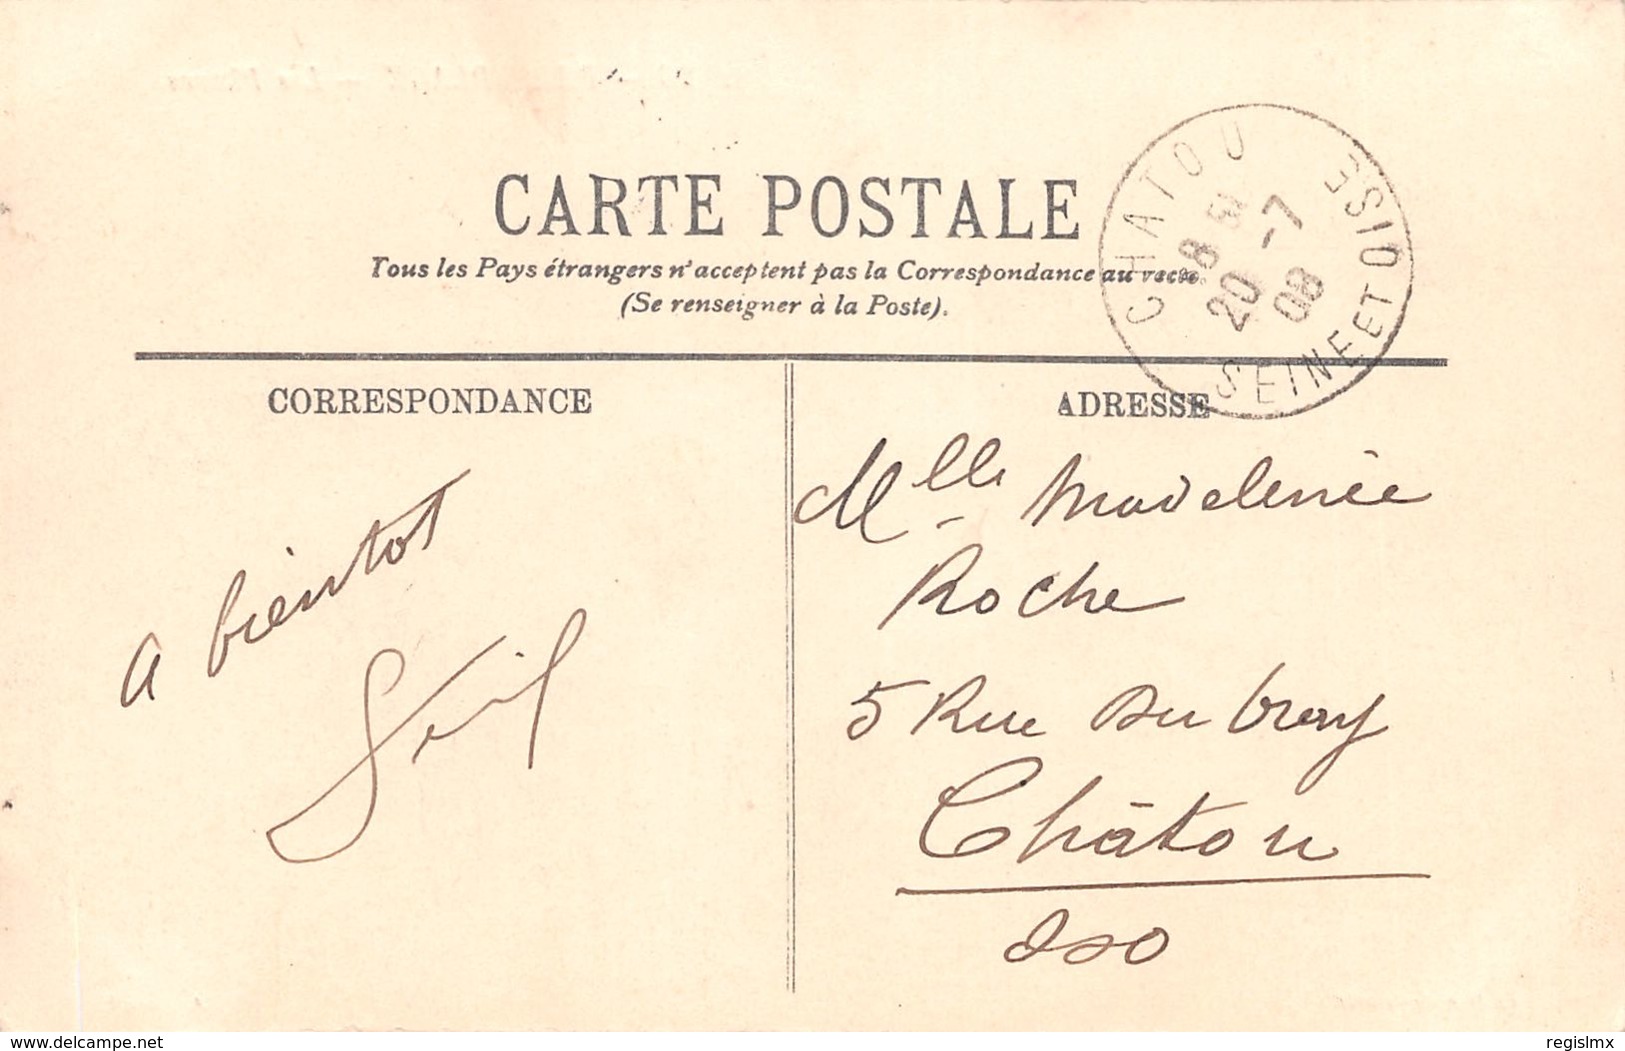 CARTE POSTALE
Tous les Pays étrangers n'acceptent pas la Correspondance au recto.
(Se renseigner à la Poste).
CHATOU
SEINE ET OISE
20 -7
08
CORRESPONDANCE
ADRESSE
A bientot
Mlle Madeleine
Roche
5 Rue du
Châtou
Sso
delcampe.net
regislmx